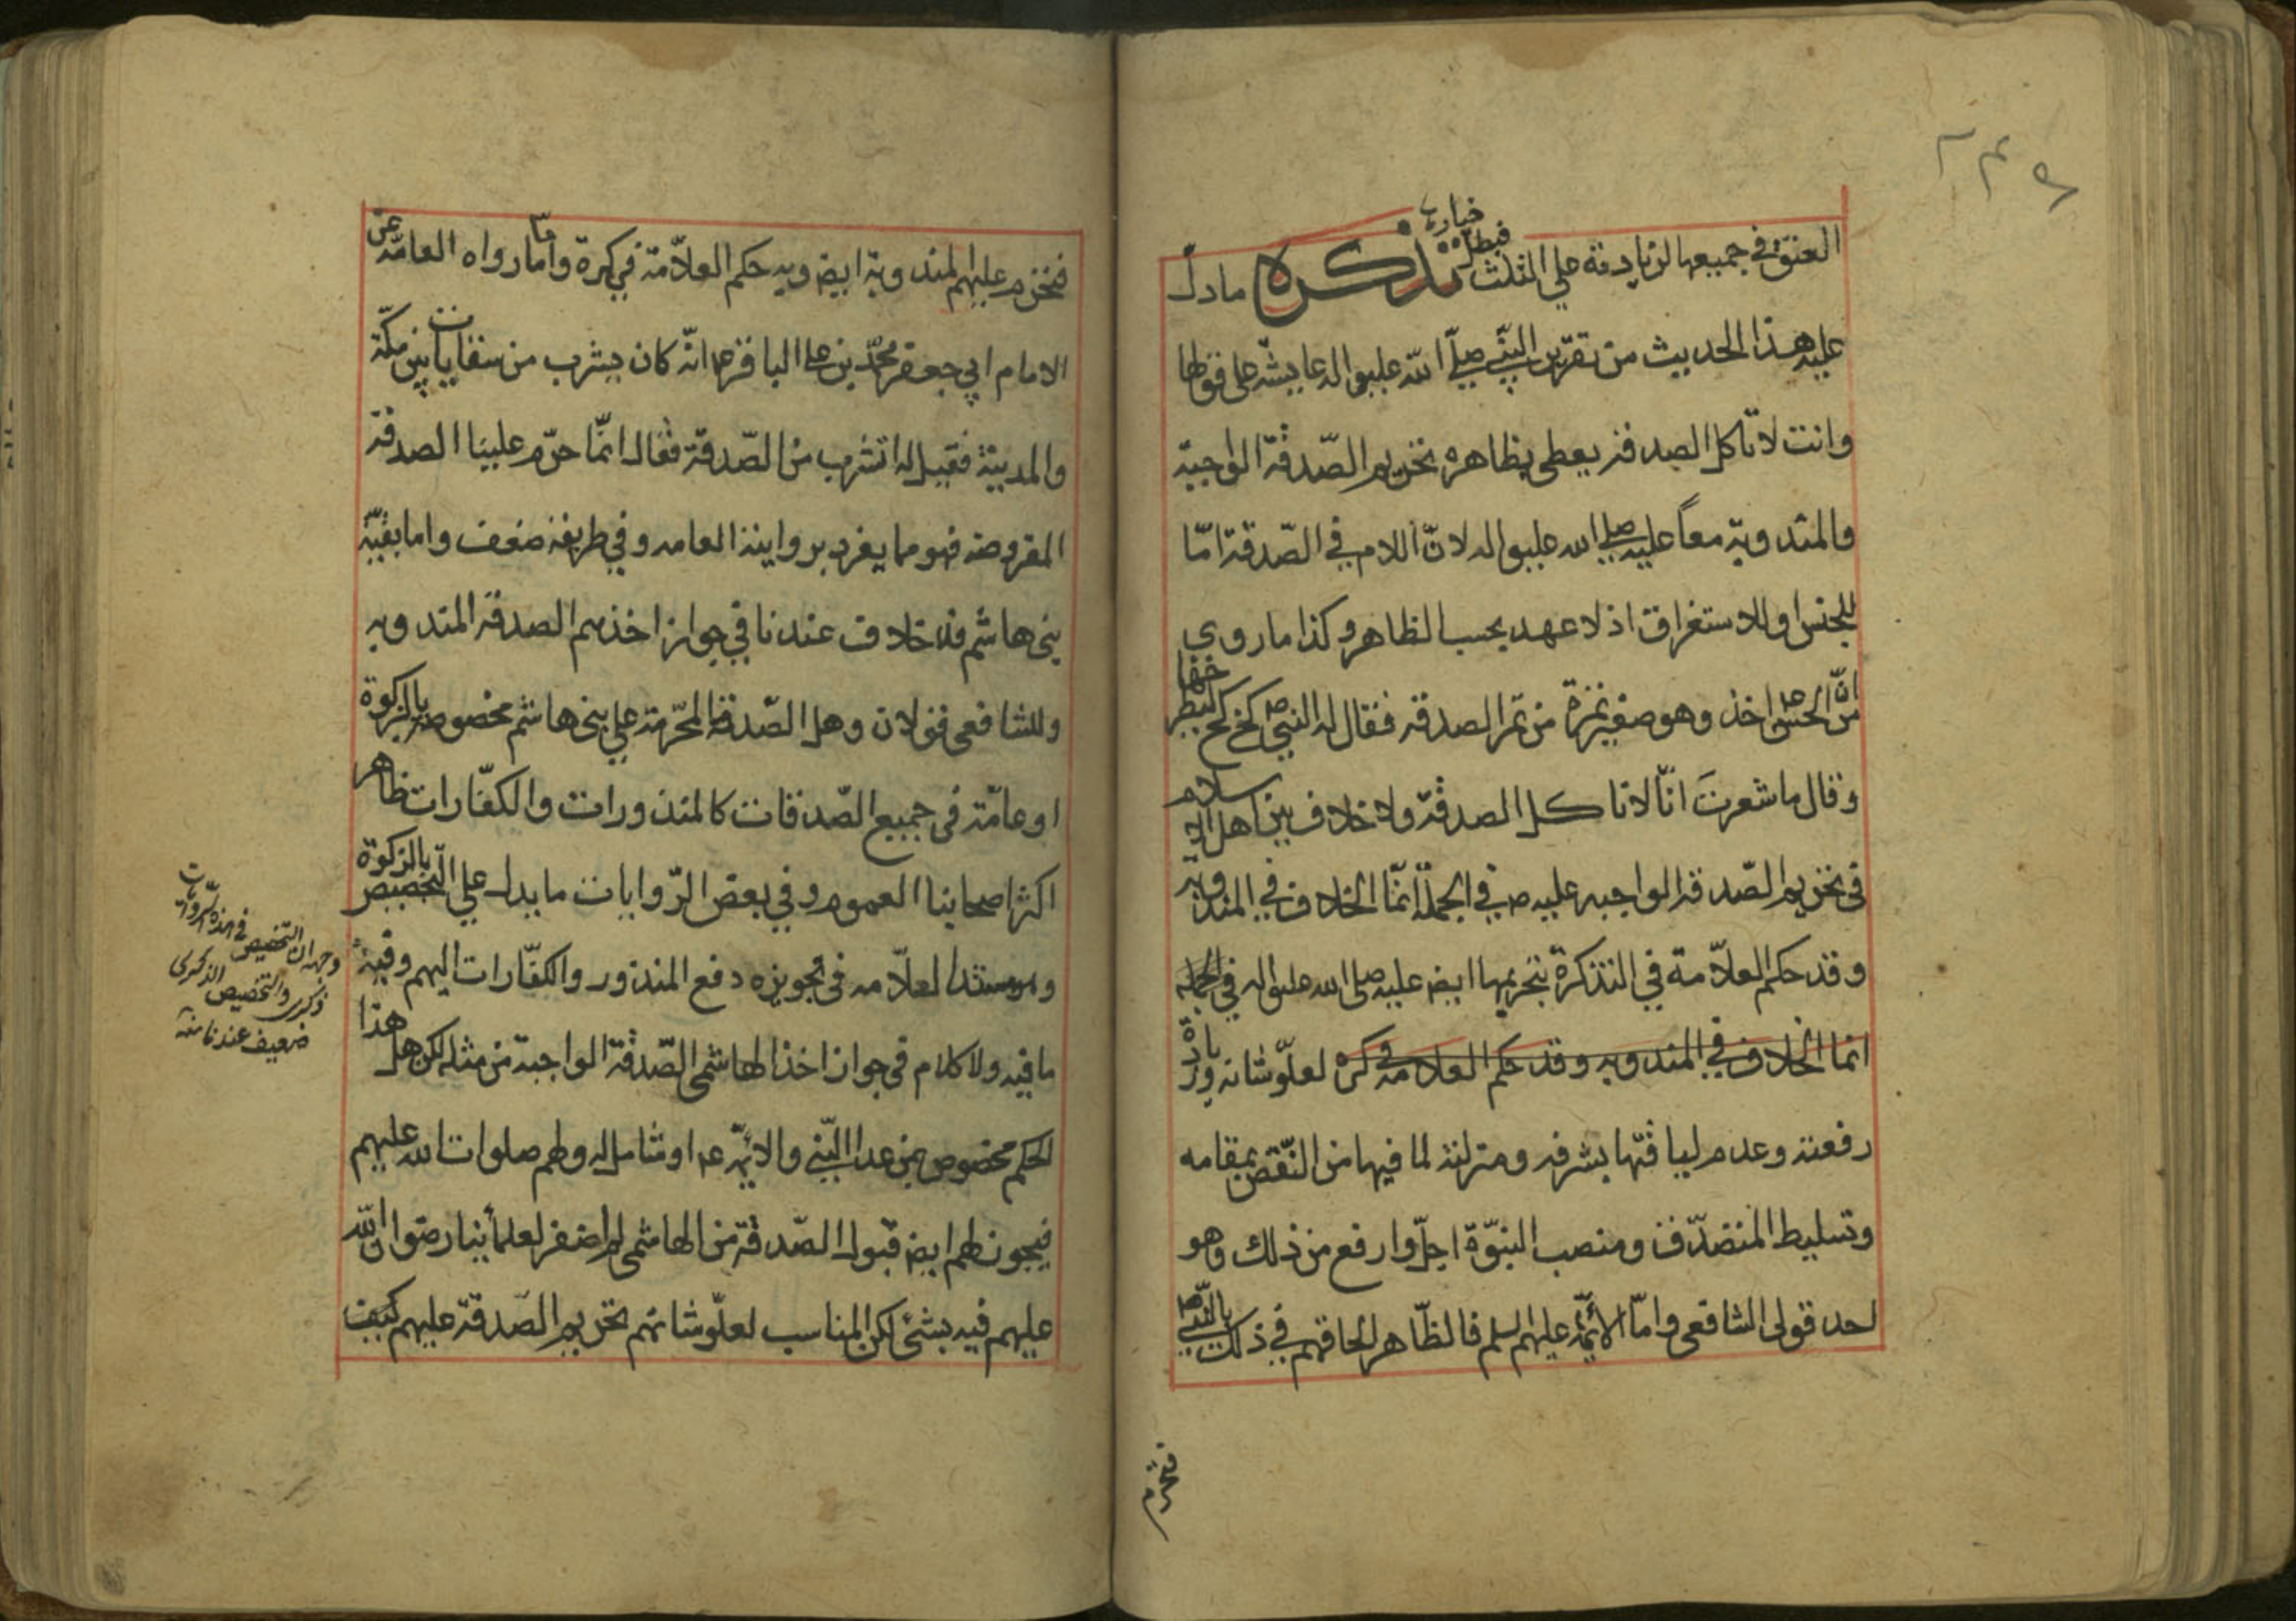 ٢٣٩
العتق في جميعها لزيادته علي الثلث فبطل خياره تذكرة ما دل
عليه هذا الحديث من تقرير النبي صلي الله عليه واله عايشه علي قولها
وانت لا تاكل الصدقه يعطى بظاهره تحريم الصدقة الواجبة
والمندوبة معاً عليه صلي الله عليه واله لانّ اللام في الصدقة امّا
للجنس او للاستغراق اذ لا عهد بحسب الظاهر وكذا ما روى
من انّ الحسن ع اخذ وهو صغير تمرة من تمر الصدقه فقال له النبي ص كخ كخ ليطرحها
وقال ما شعرتَ انّا لا ناكل الصدقة ولا خلاف بين اهل الاسلام
في تحريم الصّدقه الواجبه عليه ص في الجملة انّما الخلاف في المندوبة
وقد حكم العلاّمة في التذكرة بتحريمها ايض عليه صلي الله عليه واله في الجمله
انما الخلاف في المندوبه وقد حكم العلامه في كره لعلوّ شانه وزيادة
رفعته وعدم لياقتها بشرفه ومنزلته لما فيها من النّقص بمقامه
وتسليط المتصدّق ومنصب النبوّة اجلّ وارفع من ذلك وهو
احد قولى الشافعى وامّا الائمّة عليهم السلم فالظّاهر الحاقهم في ذلك بالنّبي ص
فتحرم
فتحرم عليهم المندوبة ايض وبه حكم العلاّمة في كرة وامّا ما رواه العامّه عن
الامام ابي جعفر محمّد بن علي الباقر ع انّه كان يشرب من سقايات بين مكّة
والمدينة فقيل له اتشرب من الصّدقة فقال انّما حرّم علينا الصدقة
المفروضه فهو مما يفرد بروايته العامه وفي طريقه ضعف واما بقيّة
بنى هاشم فلا خلاف عندنا في جواز اخذهم الصدقه المندوبه
وللشافعى قولان وهل الصّدقة المحرّمة علي بنى هاشم مخصوصه بالزكوة
او عامّة في جميع الصّدقات كالمنذورات والكفّارات ظاهر
اكثر اصحابنا العموم وفي بعض الرّوايات ما يدل علي التّخصيص بالزكوة
وهو مستند العلاّمه في تجويزه دفع المنذور والكفّارات اليهم وفيه
ما فيه ولا كلام في جواز اخذ الهاشمى الصّدقة الواجبة من مثله لكن هل هذا
الحكم مخصوص بمن عدا النّبي والائمّة ع او شامل له ولهم صلوات الله عليهم
فيجوز لهم ايض قبول الصّدقة من الهاشمى لم اضفر لعلمائنا رضوان الله
عليهم فيه بشئ لكن المناسب لعلوّ شانهم تحريم الصّدقة عليهم كيف
وجهه ان التخصيص في هذه الروايات
ذكرى والتخصيص الذكرى
ضعيف عندنا منه